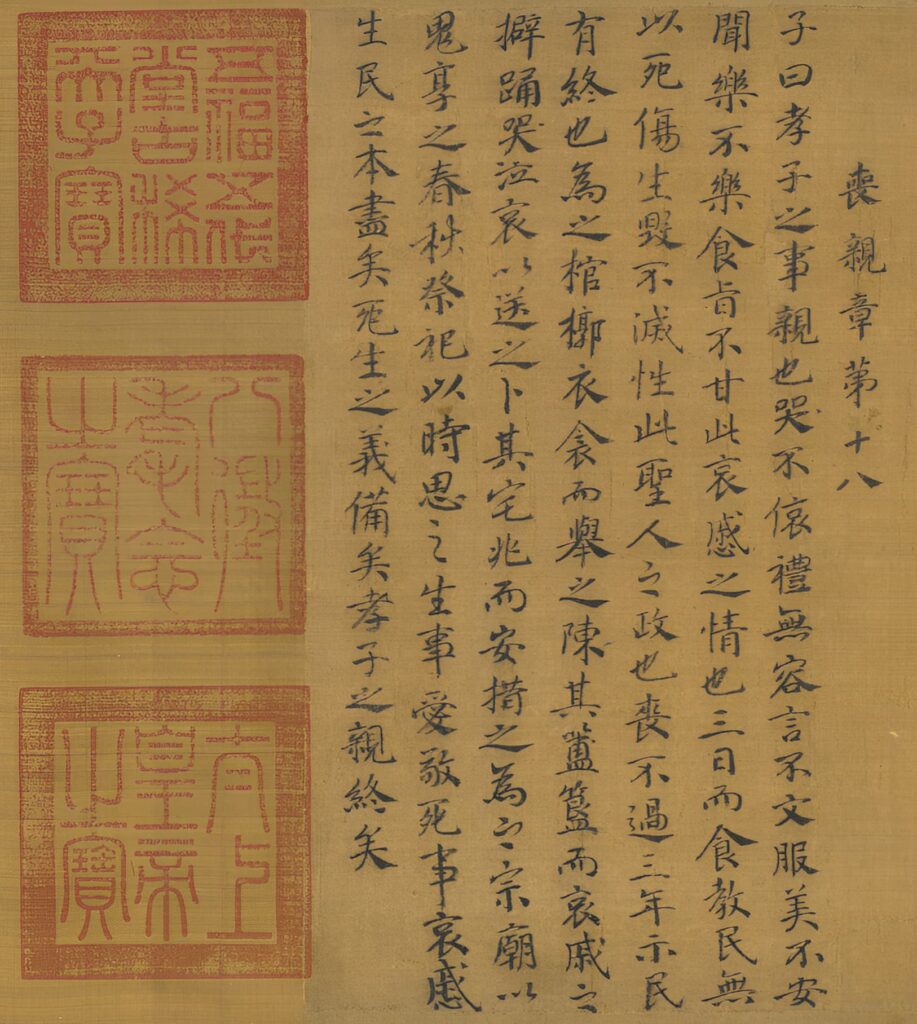 喪親章第十八
子曰孝子之事親也哭不偯禮無容言不文服美不安
聞樂不樂食旨不甘此哀慼之情也三日而食教民無
以死傷生毀不滅性此聖人之政也喪不過三年示民
有終也為之棺槨衣衾而舉之陳其簠簋而哀戚之
擗踊哭泣哀以送之卜其宅兆而安措之為之宗廟以
鬼享之春秋祭祀以時思之生事愛敬死事哀慼
生民之本盡矣死生之義備矣孝子之親終矣
五福五代
堂古稀
天子寶
八徵
耄念
之寶
太上
皇帝
之寶